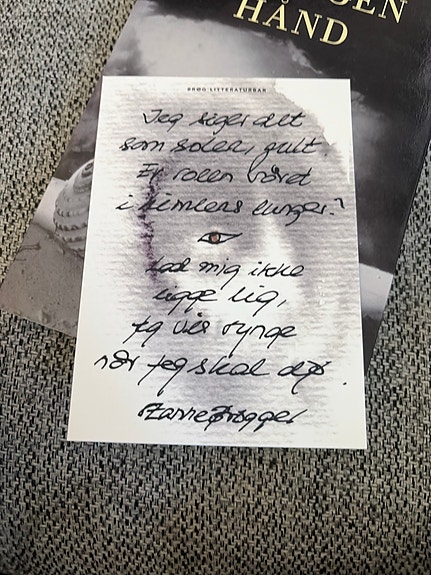 HÅND
BRØG LITTERATURBAR
Jeg siger det
som solen, gult.
Er båret
i himlens lunger?
Lad mig ikke
ligge lig,
Jeg vil synge
når jeg skal dø.
Zanne Brøgger